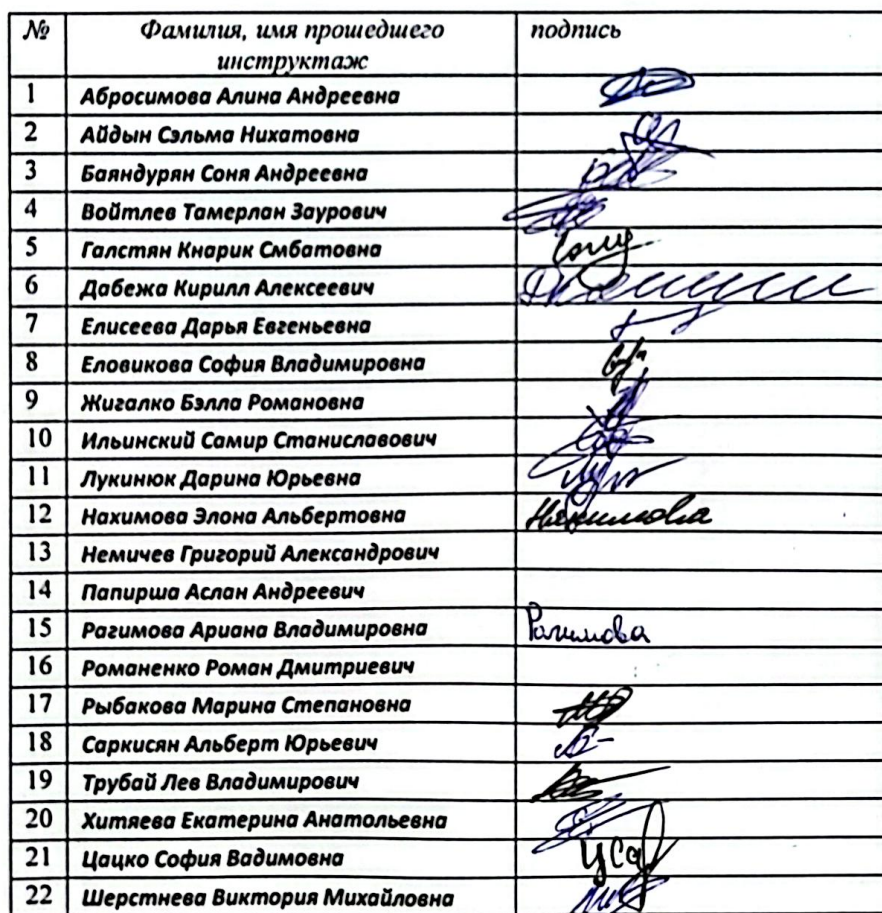 № Фамилия, имя прошедшего подпись
инструктаж
1 Абросимова Алина Андреевна
2 Айдын Сэльма Нихатовна
3 Баяндурян Соня Андреевна
4 Войтлев Тамерлан Заурович
5 Галстян Кнарик Смбатовна
6 Дабежа Кирилл Алексеевич
7 Елисеева Дарья Евгеньевна
8 Еловикова София Владимировна
9 Жигалко Бэлла Романовна
10 Ильинский Самир Станиславович
11 Лукинюк Дарина Юрьевна
12 Нахимова Элона Альбертовна Нахимова
13 Немичев Григорий Александрович
14 Папирша Аслан Андреевич
15 Рагимова Ариана Владимировна Рагимова
16 Романенко Роман Дмитриевич
17 Рыбакова Марина Степановна
18 Саркисян Альберт Юрьевич
19 Трубай Лев Владимирович
20 Хитяева Екатерина Анатольевна
21 Цацко София Вадимовна
22 Шерстнева Виктория Михайловна